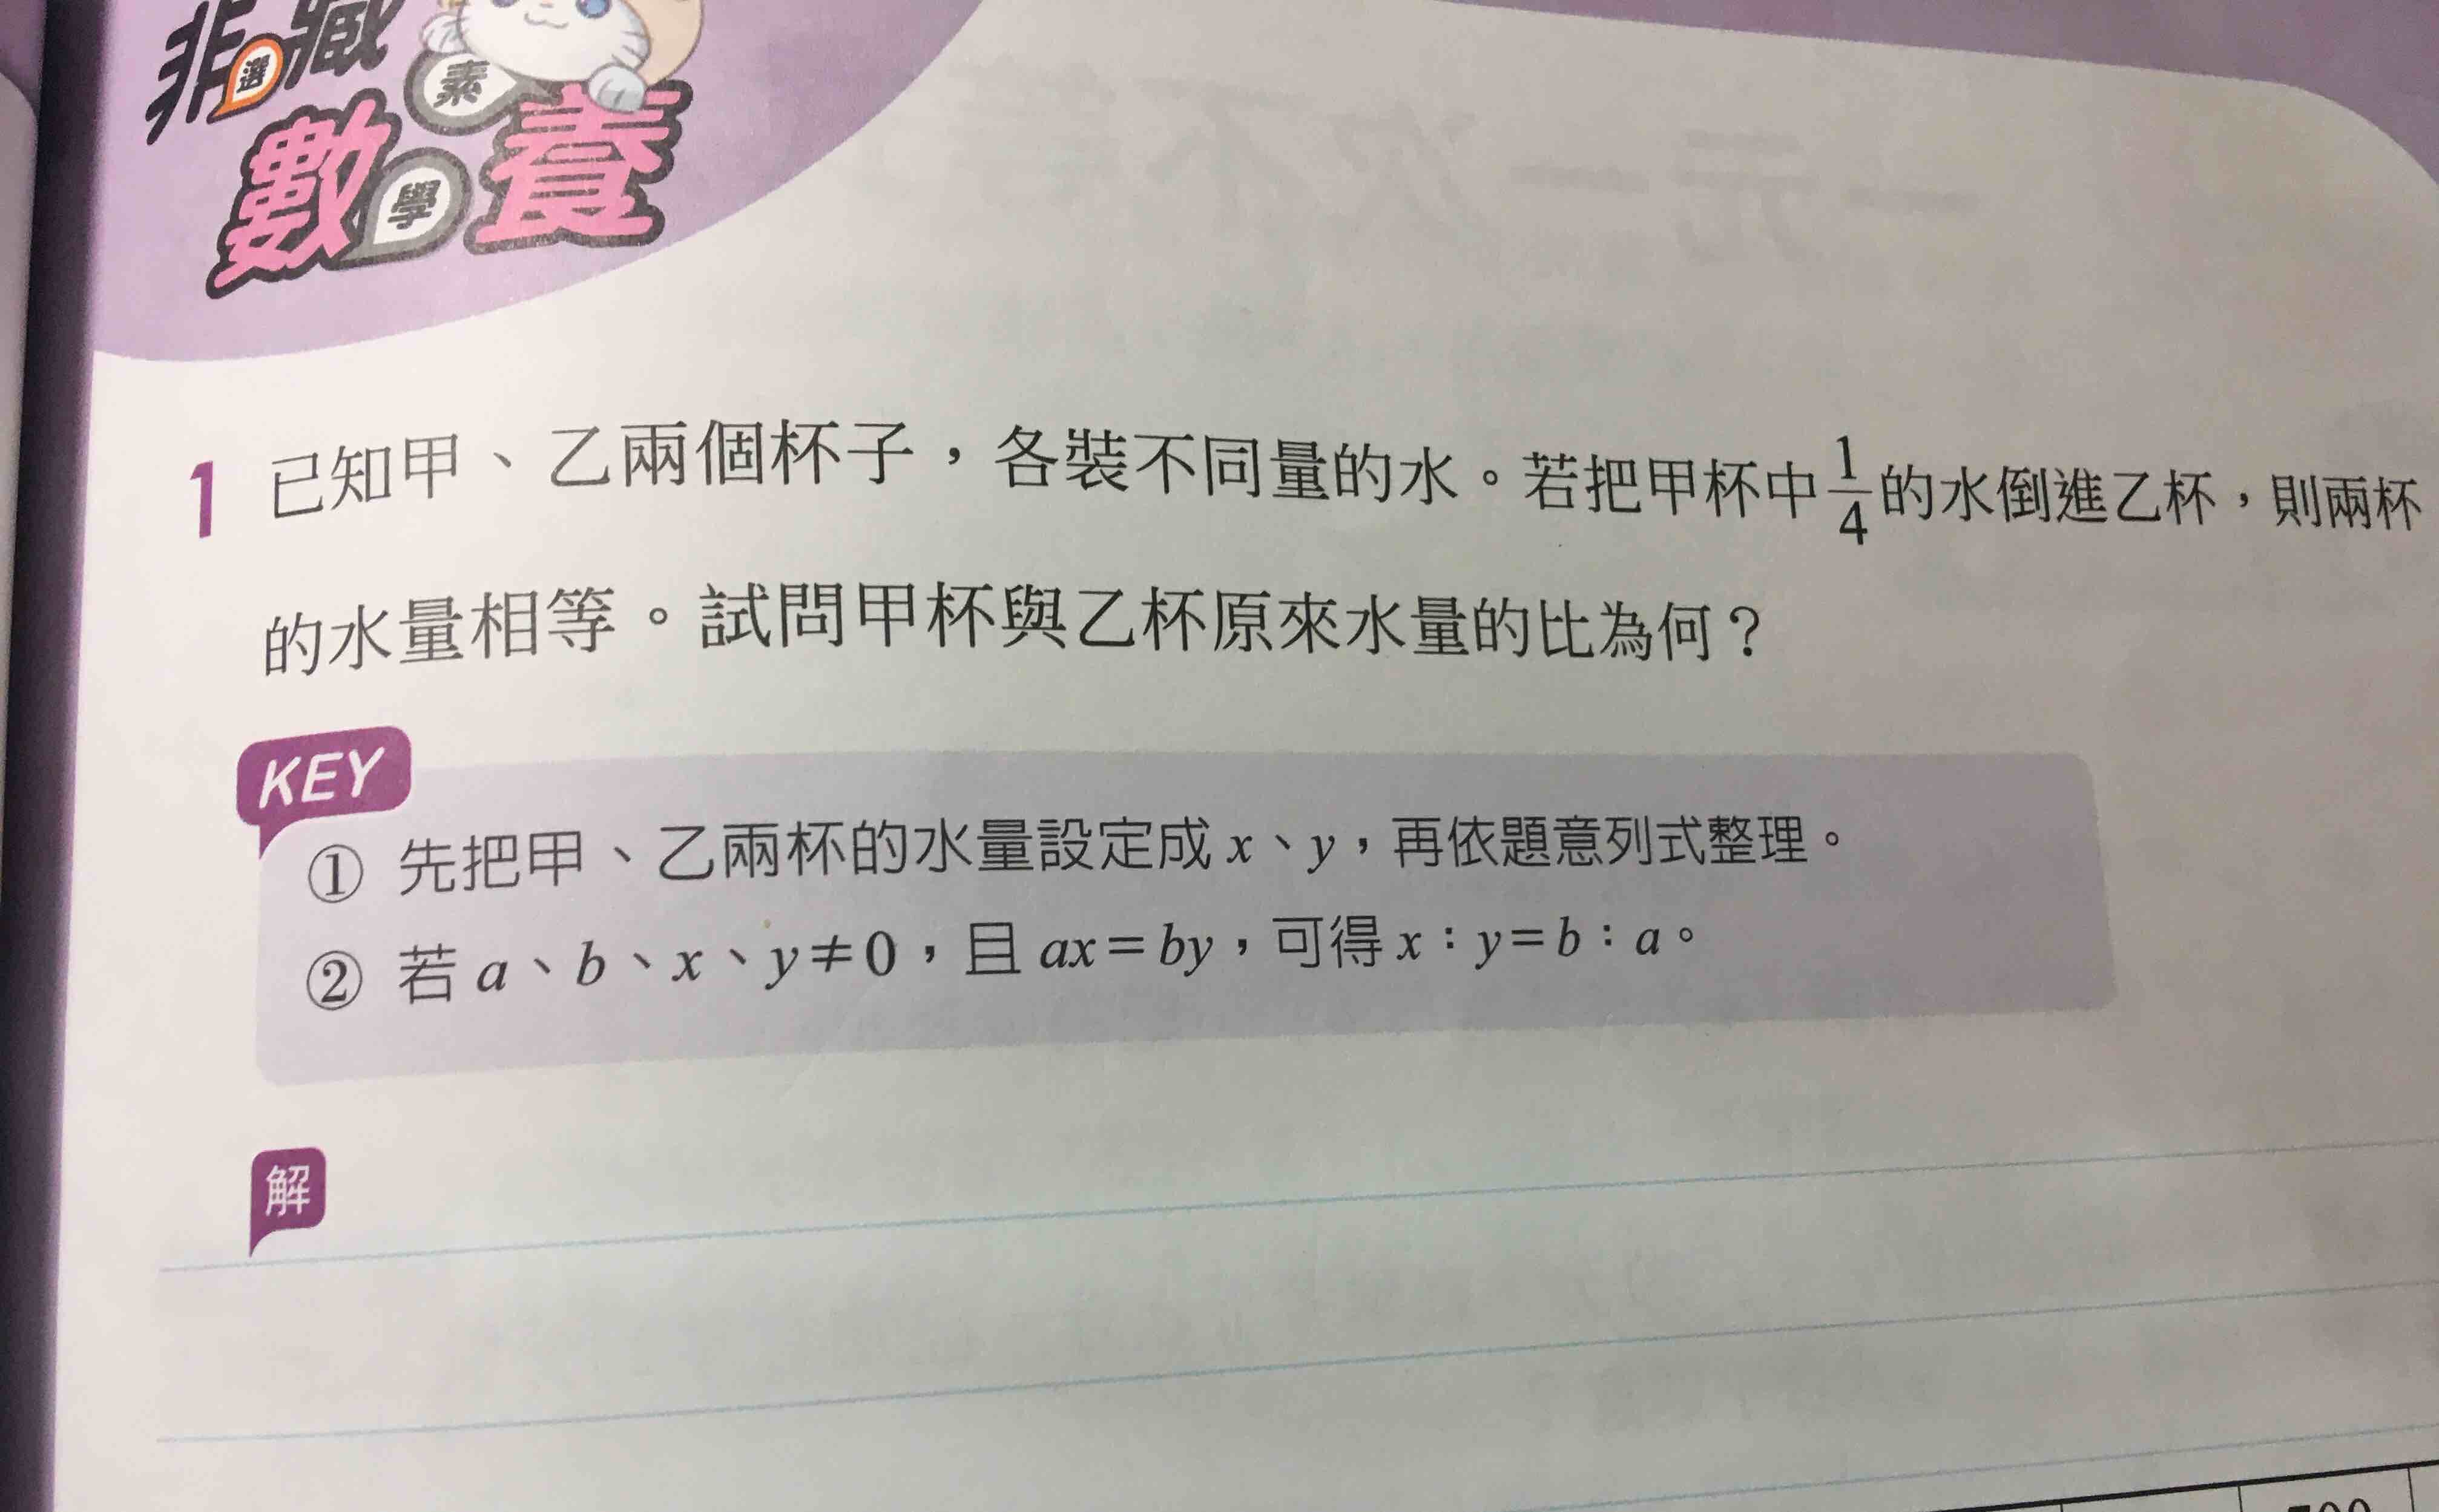 非選藏
數學素養
1 已知甲、乙兩個杯子，各裝不同量的水。若把甲杯中1/4的水倒進乙杯，則兩杯
的水量相等。試問甲杯與乙杯原來水量的比為何？
KEY
① 先把甲、乙兩杯的水量設定成 x、y，再依題意列式整理。
② 若 a、b、x、y≠0，且 ax=by，可得 x：y=b：a。
解